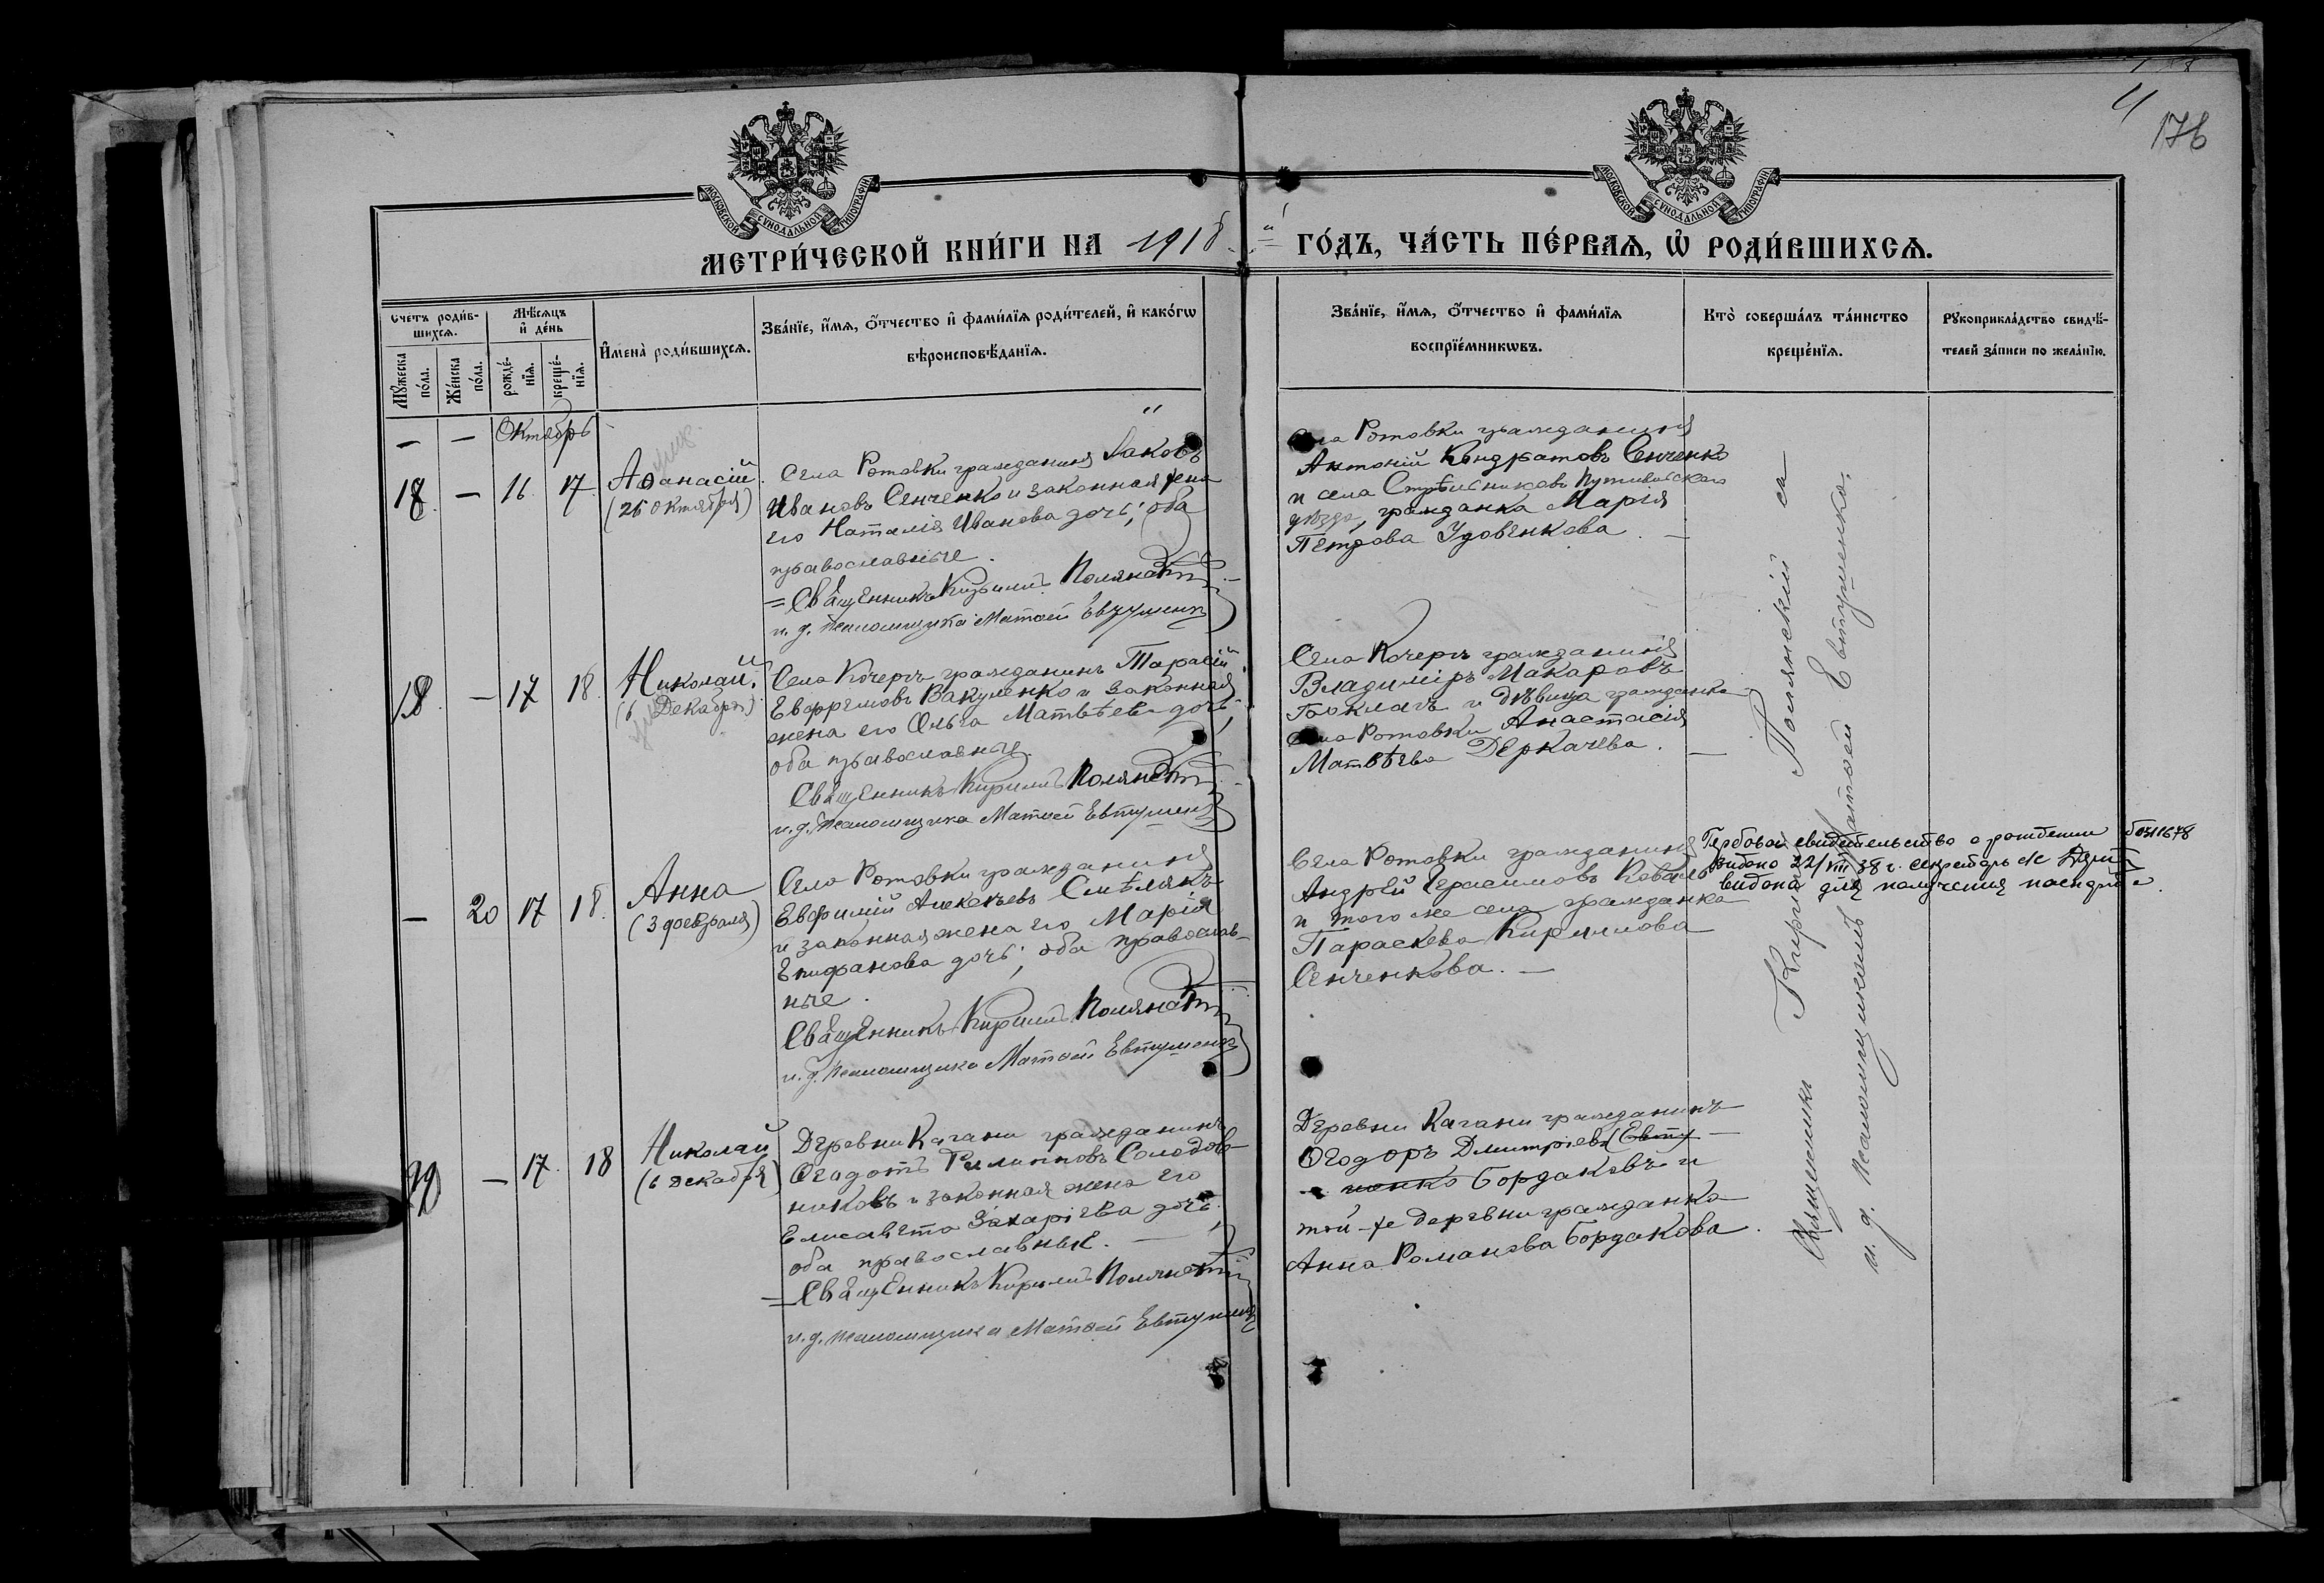 4
176
МОСКОВСКОЙ СѴНОДАЛЬНОЙ ТИПОГРАФІИ
МОСКОВСКОЙ СѴНОДАЛЬНОЙ ТИПОГРАФІИ
МЕТРИ́ЧЕСКОЙ КНИ́ГИ НА 1918 й ГО́ДЪ, ЧА́СТЬ ПЕ́РВАЯ, Ѡ҆ РОДИ́ВШИХСЯ.
Счетъ роди́в-
шихся.
Мѣ́сяцъ
и҆ де́нь
И҆мена̀ роди́вшихся.
Зва́нїе, и҆́мя, о҆́тчество и҆ фами́лїя роди́телей, и҆ како́гѡ
вѣроисповѣ́данїя.
Мꙋ́жеска
по́ла.
Же́нска
по́ла.
рожде́-
нїя.
креще́-
нїя.
Зва́нїе, и҆́мя, о҆́тчество и҆ фами́лїя
воспрїе́мникѡвъ.
Кто̀ соверша́лъ та́инство
креще́нїя.
Рꙋкоприкла́дство свидѣ́-
телей за́писи по жела́нїю.
— — Октябрь
18 — 16 17
Аѳанасій
(26 Октября)
Села Ротовки гражданинъ Іаковъ
Ивановъ Сенченко и законная жена
его Наталія Иванова дочь; оба
православные.
Священникъ Кириллъ Полянскій
и. д. псаломщика Матѳей Евтушенко
Села Ротовки гражданинъ
Антоній Кондратовъ Сенченко
и села Стрѣльниковъ Путивльскаго
уѣзда, гражданка Марія
Петрова Удовенкова. —
18 — 17 18
Николай.
(6 Декабря)
Села Кочергъ гражданинъ Тарасій
Евфремовъ Вакуленко и законная
жена его Ольга Матвѣева дочь,
оба православные.
Священникъ Кириллъ Полянскій
и. д. псаломщика Матѳей Евтушенко
Села Кочергъ гражданинъ
Владиміръ Макаровъ
Боклагъ и дѣвица гражданка
села Ротовки Анастасія
Матвѣева Деркачева. —
— 20 17 18
Анна
(3 февраля)
Села Ротовки гражданинъ
Евфимій Алексѣевъ Смѣлякъ
и законная жена его Марія
Епифанова дочь; оба православ-
ные.
Священникъ Кириллъ Полянскій
и. д. псаломщика Матѳей Евтушенко
Села Ротовки гражданинъ
Андрей Герасимовъ Коваль
и того же села гражданка
Параскева Кириллова
Сенченкова. —
Гербовое свидетельство о рождении
видано 22/VIII 38 г. секретарь
видана для получения паспорта
19 — 17 18
Николай
(6 декабря)
Деревни Кагани гражданинъ
Ѳеодотъ Филипповъ Солодов-
никовъ и законная жена его
Елисавета Захаріева дочь,
оба православные. —
Священникъ Кириллъ Полянскій
и. д. псаломщика Матѳей Евтушенко
Деревни Кагани гражданинъ
Ѳеодоръ Дмитріевъ
Бордаковъ и
той-же деревни гражданка
Анна Романова Бордакова.
Священникъ Кириллъ Полянскій съ
и. д. псаломщикомъ Матѳей Евтушенко.